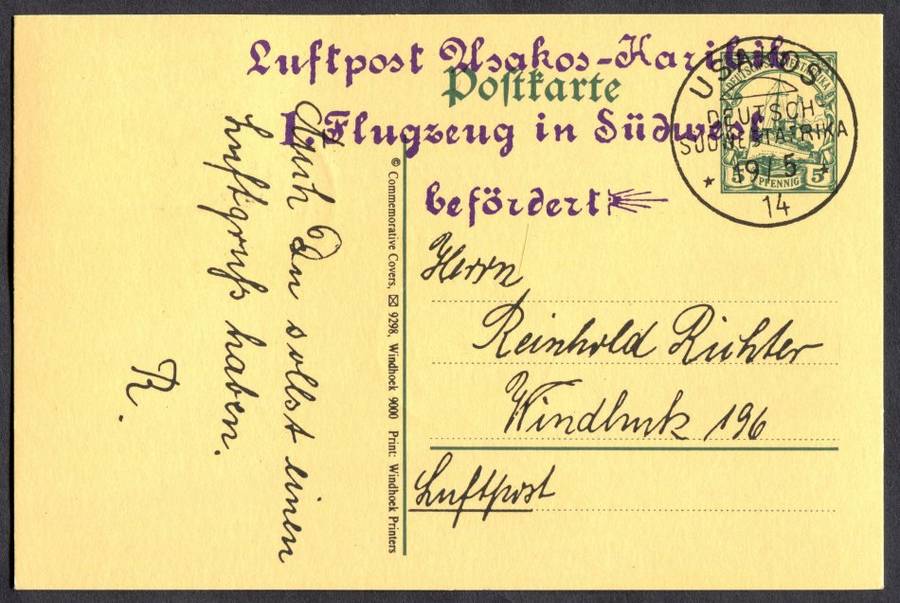 Luftpost Usakos-Karibib
Postkarte
1. Flugzeug in Südwest
befördert
USAKOS
DEUTSCH
SÜDWESTAFRIKA
19/5
14
5 PFENNIG 5
© Commemorative Covers, ✉ 9298, Windhoek 9000 Print: Windhoek Printers
Auch Du sollst einen
Luftgruß haben.
R.
Herrn
Reinhold Richter
Windhuk 196
Luftpost